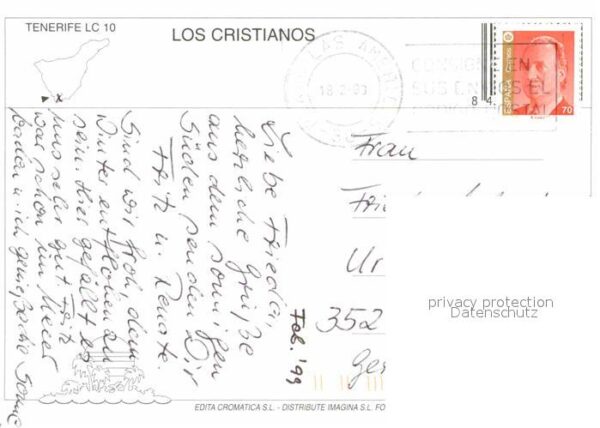 TENERIFE LC 10
LOS CRISTIANOS
LAS AMERICAS
18-2-99
CONSIGNE EN
SUS ENVIOS EL
POSTAL
ESPAÑA
70
8 4
Liebe Frieda,
herzliche Grüße
aus dem sonnigen
Süden senden Dir
Fritz u. Renate.
Sind wir froh, dem
Winter entflohen zu
sein. Hier gefällt es
uns sehr gut. Fritz
war schon im Meer
baden u. ich genieße die Sonne
Feb. '99
Frau
Ur
352
privacy protection
Datenschutz
EDITA CROMATICA S.L. - DISTRIBUTE IMAGINA S.L. FO